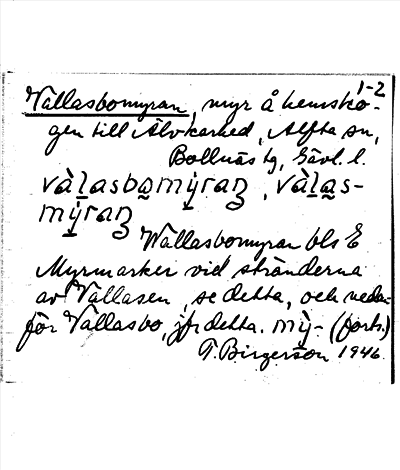 1-2
Vallasbomyran, myr å hemsko-
gen till Älvkarhed, Alfta sn,
Bollnäs tg, Gävl. l.
vàḻasbo̱mý̱raꞑ, vàḻa̱s-
mý̱raꞑ
Wallasbomyran bls E
Myrmarker vid stränderna
av Vallasen, se detta, och neda-
för Vallasbo, jfr detta. mỳ̱- (forts.)
T. Birgerson 1946.